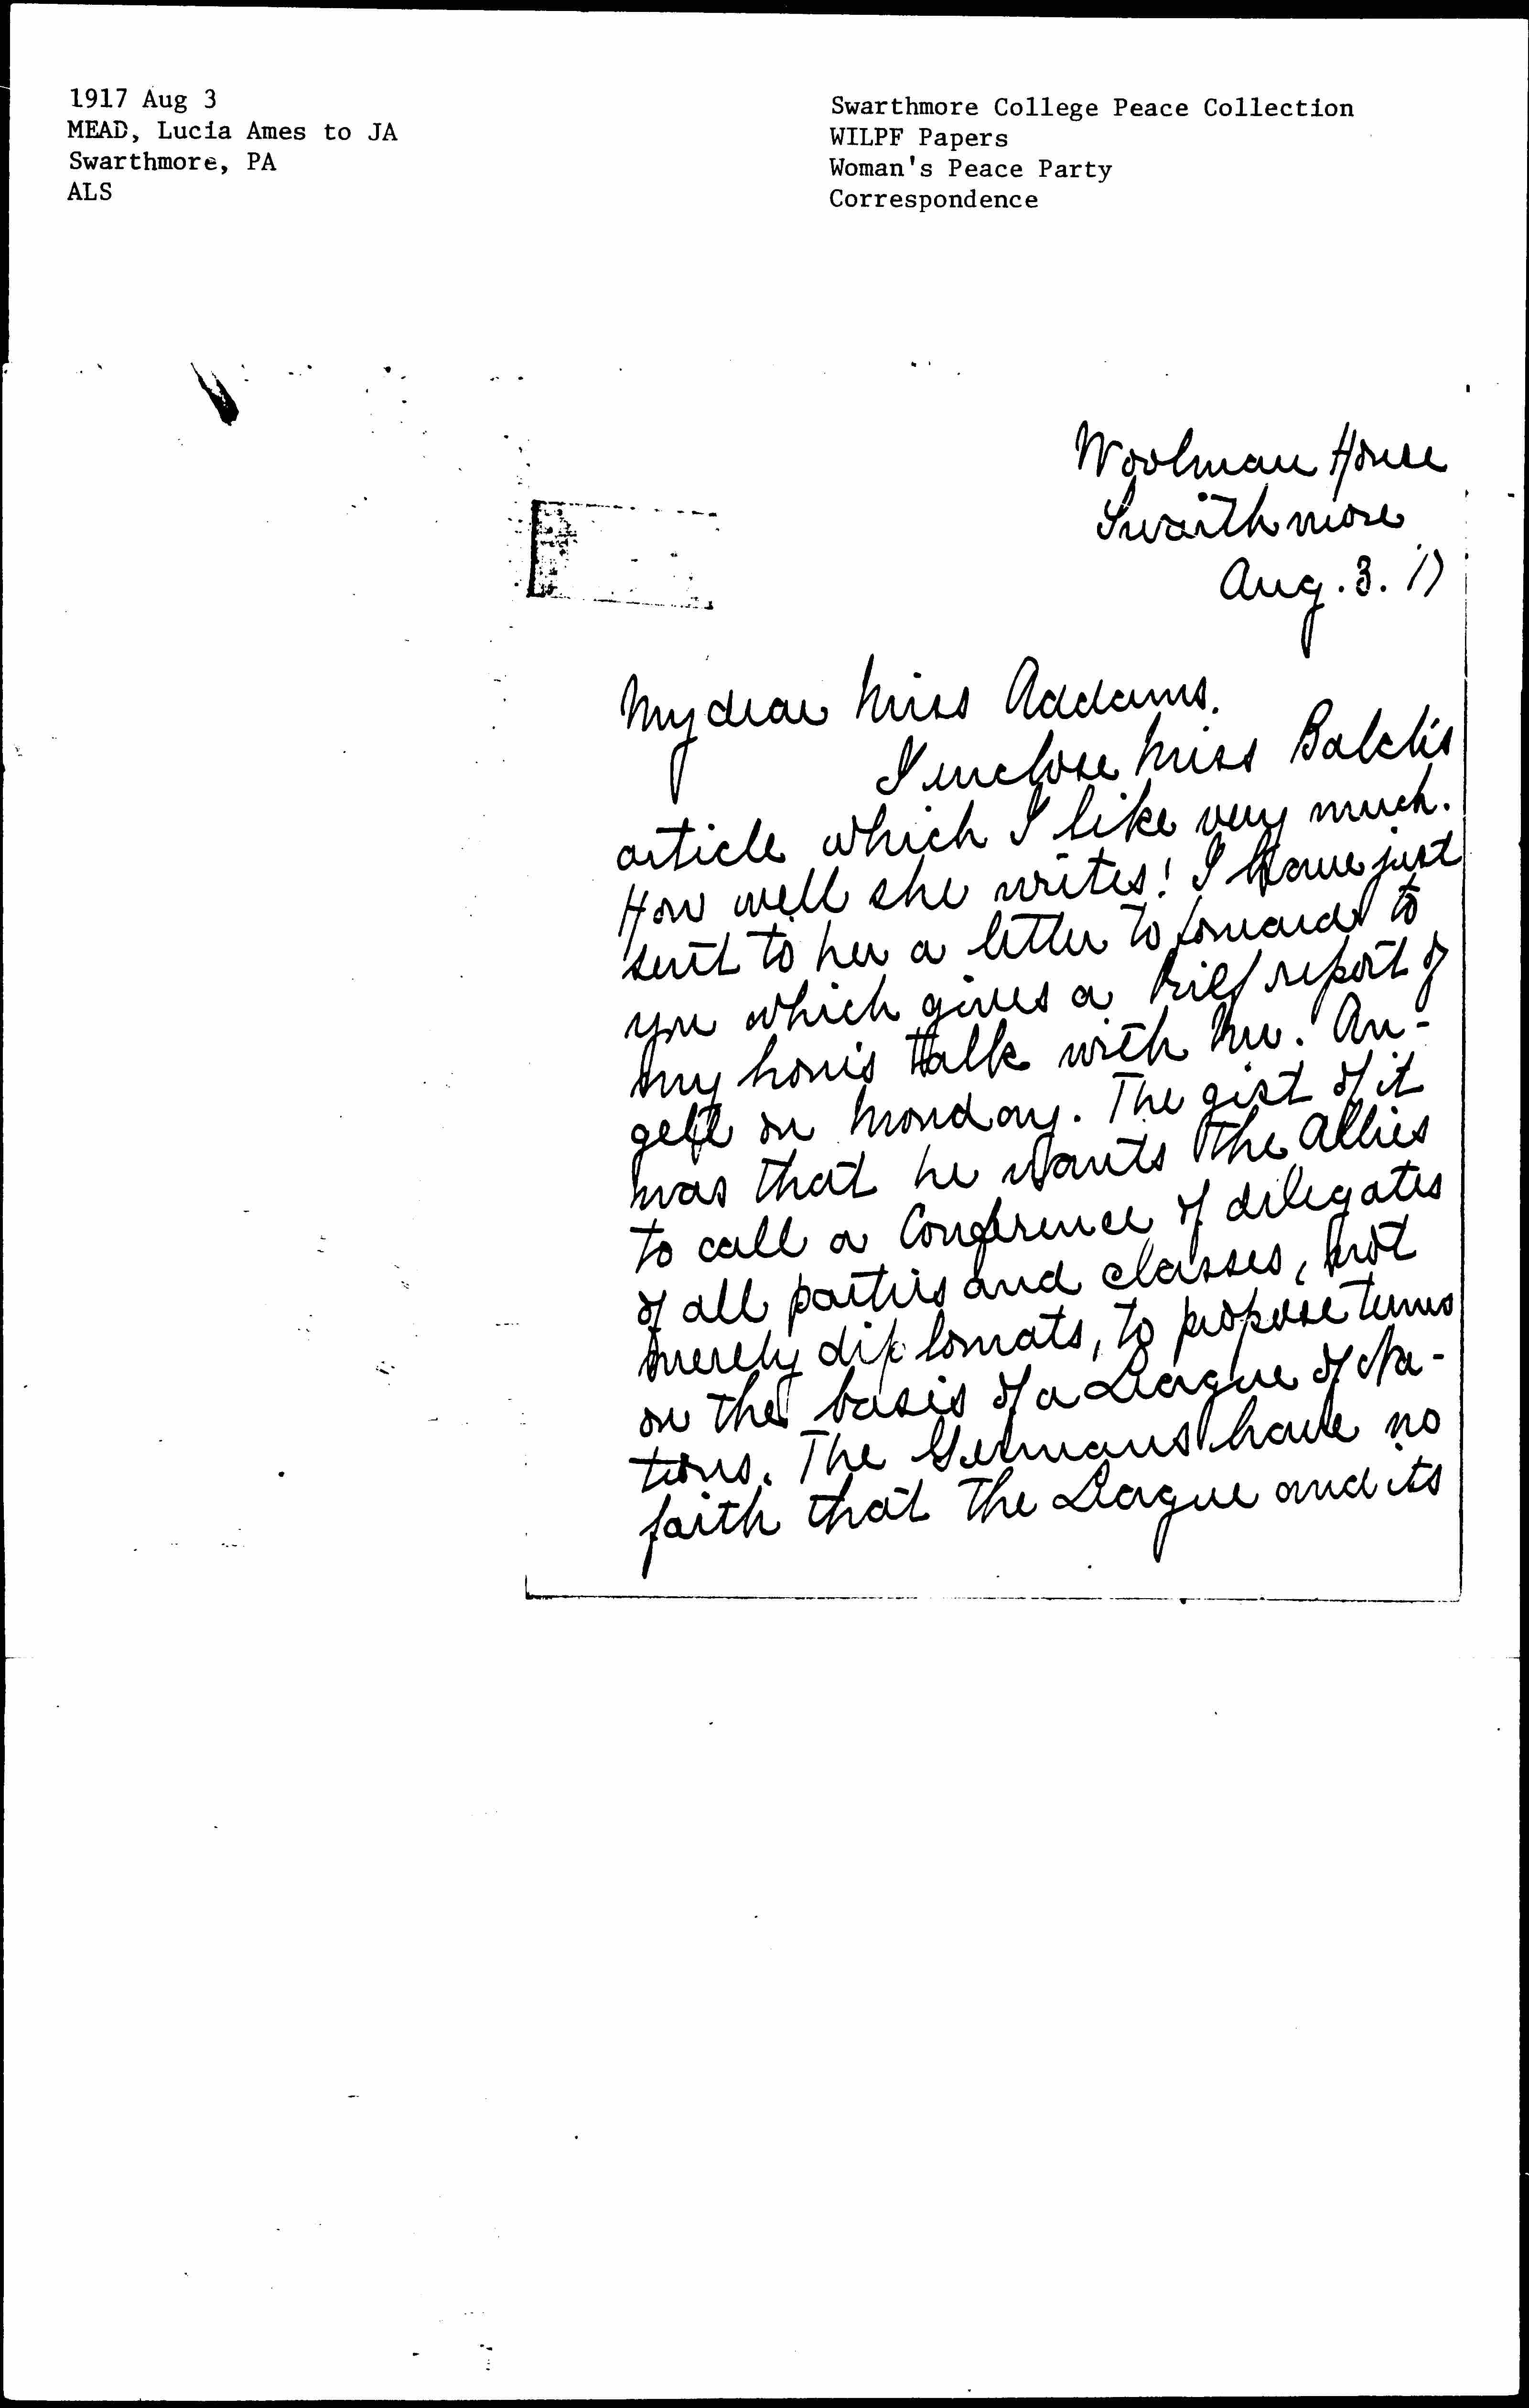 1917 Aug 3
MEAD, Lucia Ames to JA
Swarthmore, PA
ALS
Swarthmore College Peace Collection
WILPF Papers
Woman's Peace Party
Correspondence
Woolman House
Swarthmore
Aug. 3. 17
My dear Miss Addams.
I inclose Miss Balch's
article which I like very much.
How well she writes! I have just
sent to her a letter to forward to
you which gives a brief report of
my hour's talk with Mr. An-
gell on Monday. The gist of it
was that he wants the Allies
to call a Conference of delegates
of all parties and classes, not
merely diplomats, to propose terms
on the basis of a League of Na-
tions. The Germans have no
faith that the League and its